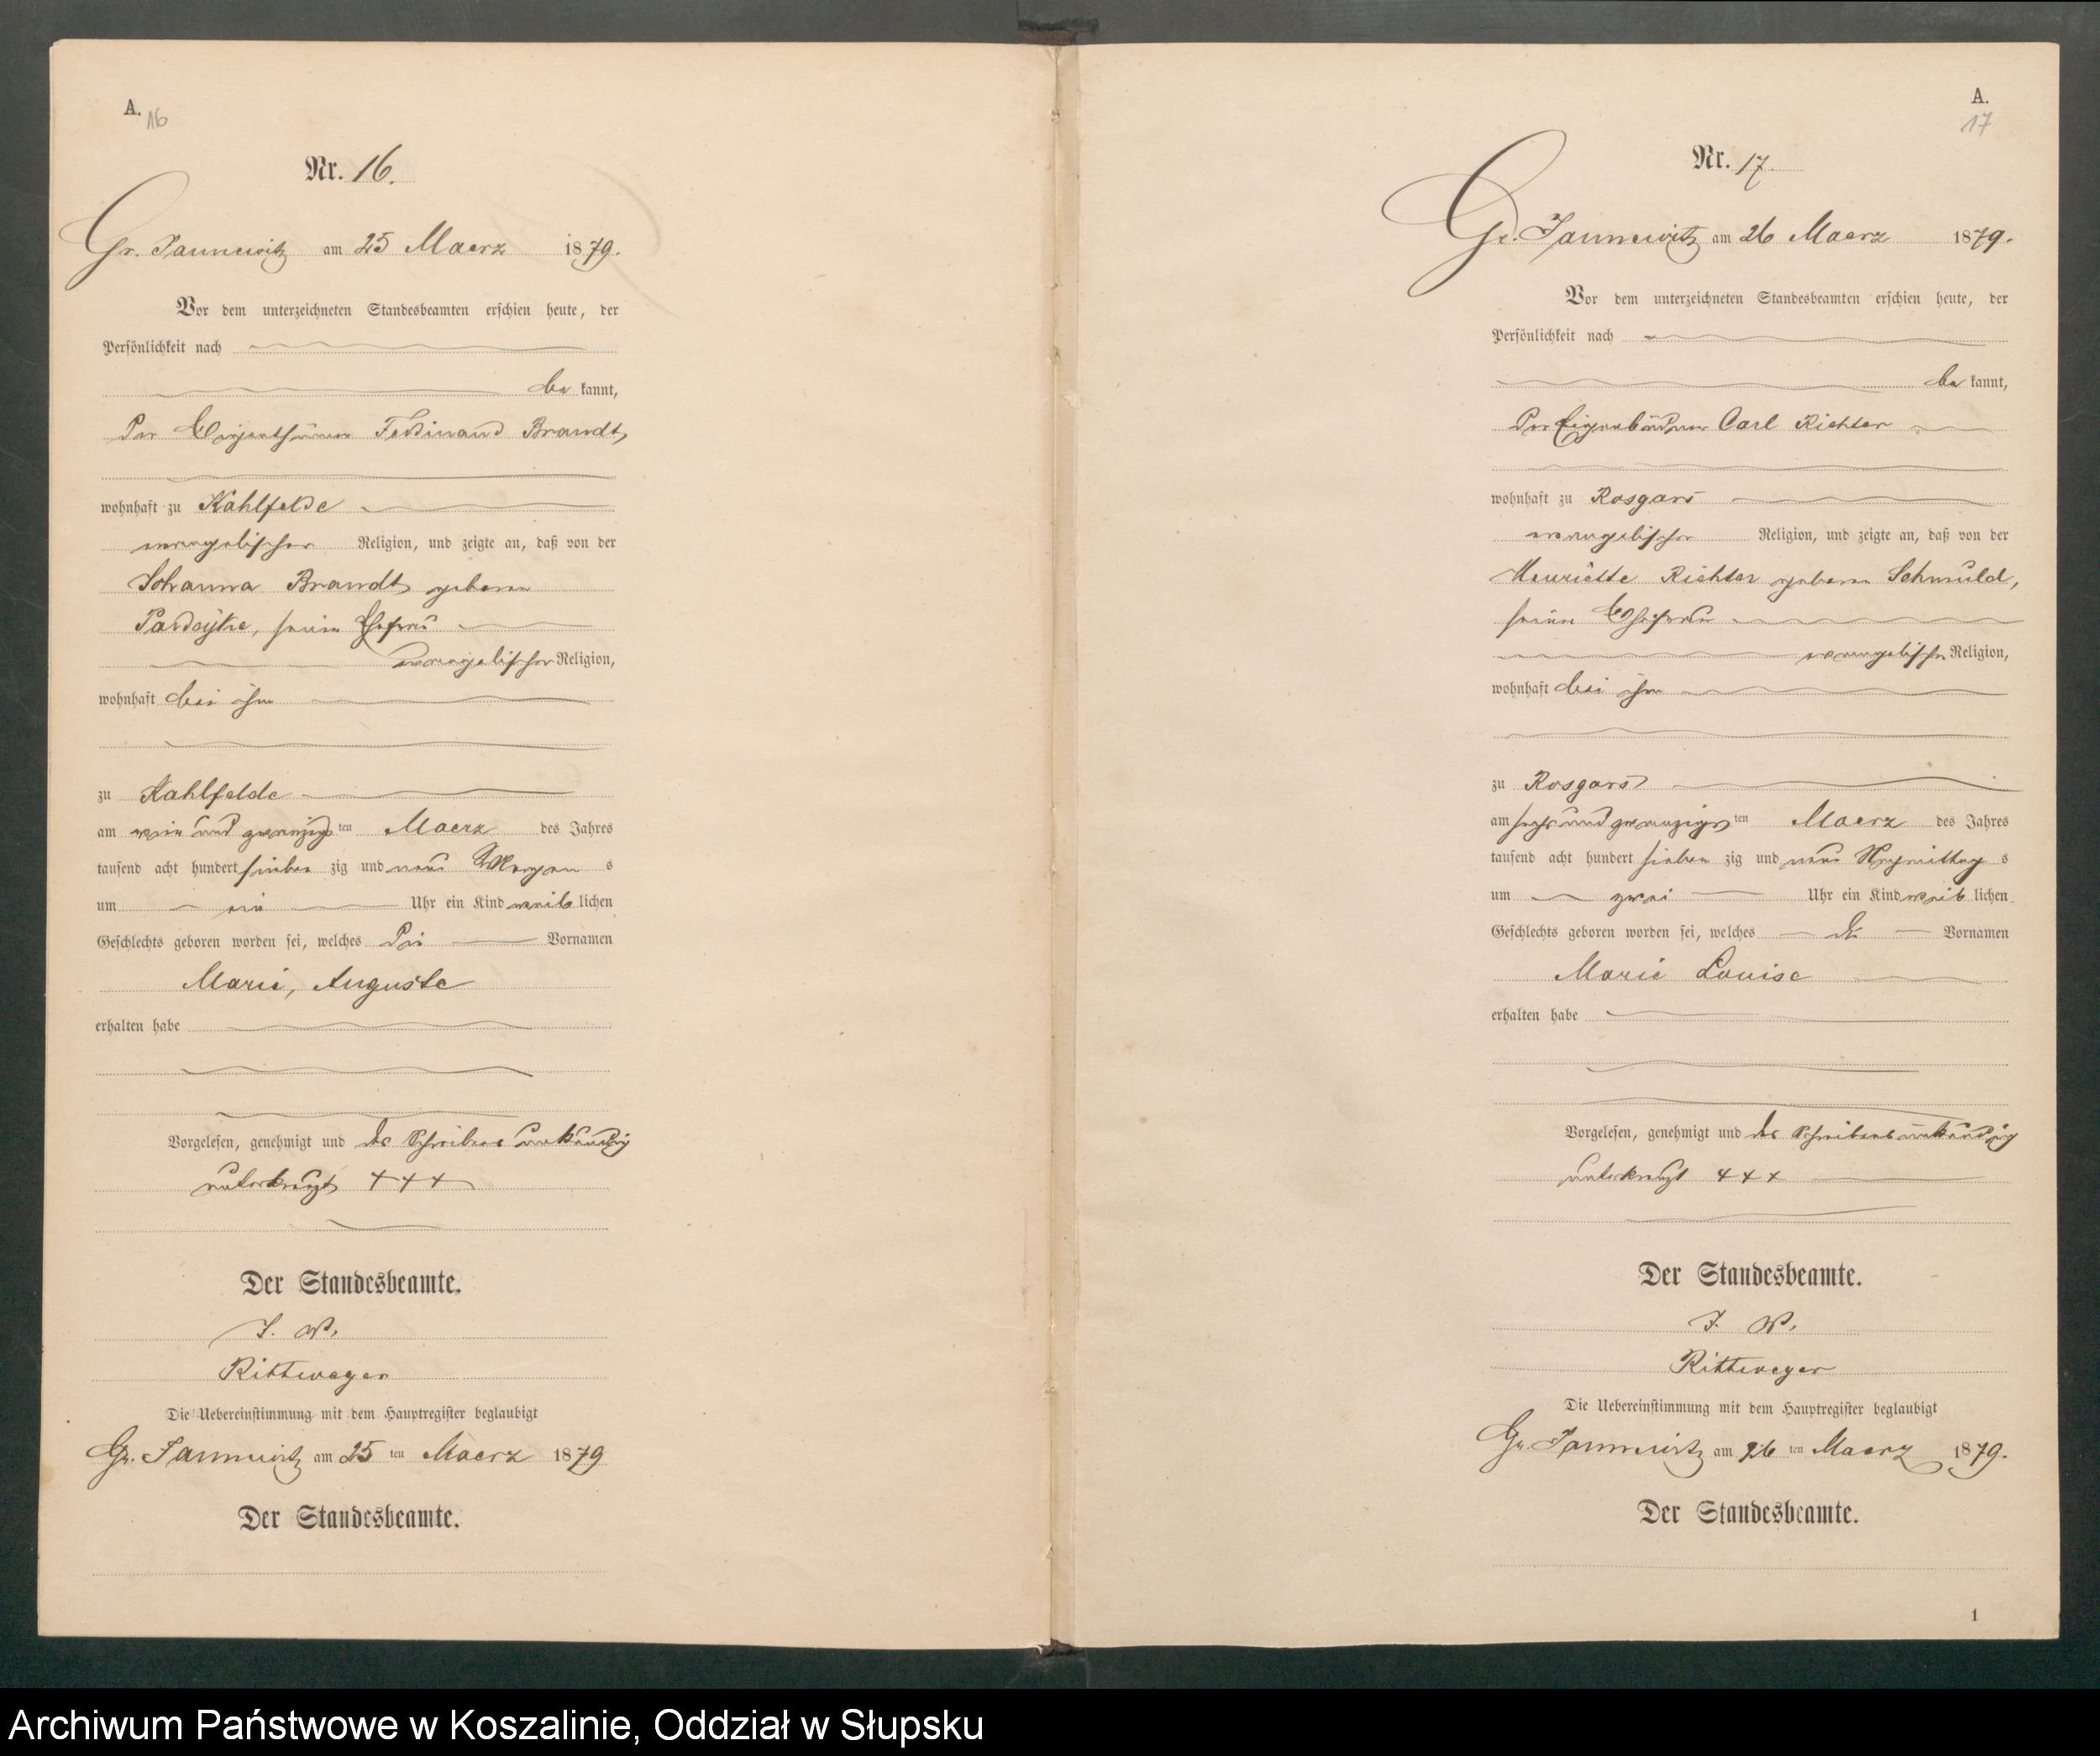 A.
16
Nr. 16.
Gr. Jannewitz am 25 Maerz 1879.
Vor dem unterzeichneten Standesbeamten erschien heute, der
Persönlichkeit nach
be kannt,
Der Eigenthümer Ferdinand Brandt,
wohnhaft zu Kahlfelde
evangelischer Religion, und zeigte an, daß von der
Johanna Brandt geborene
seine Ehefrau
evangelischer Religion,
wohnhaft bei ihm
zu Kahlfelde
am ein und zwanzig ten Maerz des Jahres
tausend acht hundert sieben zig und neun Morgen s
um ein Uhr ein Kind weib lichen
Geschlechts geboren worden sei, welches die Vornamen
Marie, Auguste
erhalten habe
Vorgelesen, genehmigt und des Schreibens unkundig
unterkreuzt +++
Der Standesbeamte.
J. V.
Rittweger
Die Uebereinstimmung mit dem Hauptregister beglaubigt
Gr. Jannewitz am 25 ten Maerz 1879
Der Standesbeamte.
A.
17
Nr. 17.
Gr. Jannewitz am 26 Maerz 1879.
Vor dem unterzeichneten Standesbeamten erschien heute, der
Persönlichkeit nach
be kannt,
Der Eigenbüdner Carl Richter
wohnhaft zu Rosgars
evangelischer Religion, und zeigte an, daß von der
Henriette Richter geborene Schmuld,
seine Ehefrau
evangelischer Religion,
wohnhaft bei ihm
zu Rosgars
am sechs und zwanzigs ten Maerz des Jahres
tausend acht hundert sieben zig und neun Nachmittag s
um zwei Uhr ein Kind weib lichen
Geschlechts geboren worden sei, welches die Vornamen
Marie Louise
erhalten habe
Vorgelesen, genehmigt und des Schreibens unkundig
unterkreuzt +++
Der Standesbeamte.
J. V.
Rittweger
Die Uebereinstimmung mit dem Hauptregister beglaubigt
Gr. Jannewitz am 26 ten Maerz 1879.
Der Standesbeamte.
1
Archiwum Państwowe w Koszalinie, Oddział w Słupsku